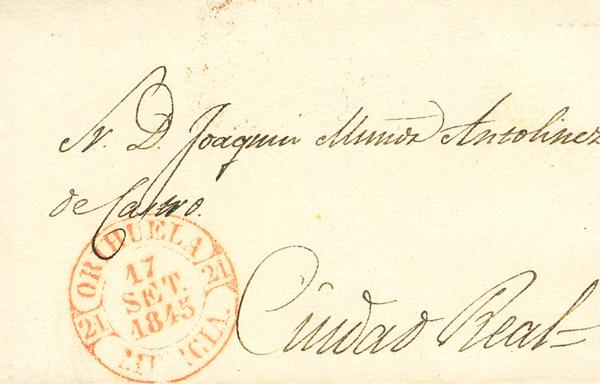 Sr. D. Joaquin Muñoz Antolinez
de Castro.
ORIHUELA
21 21
17
SET.
1845
MURCIA.
Ciudad Real